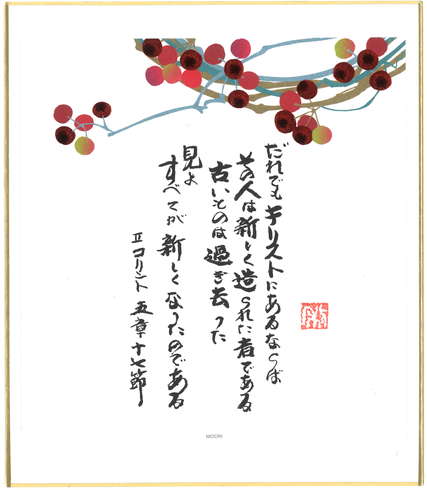 だれでもキリストにあるならば
その人は新しく造られた者である
古いものは過ぎ去った
見よ
すべてが新しくなったのである
II コリント 五章十七節